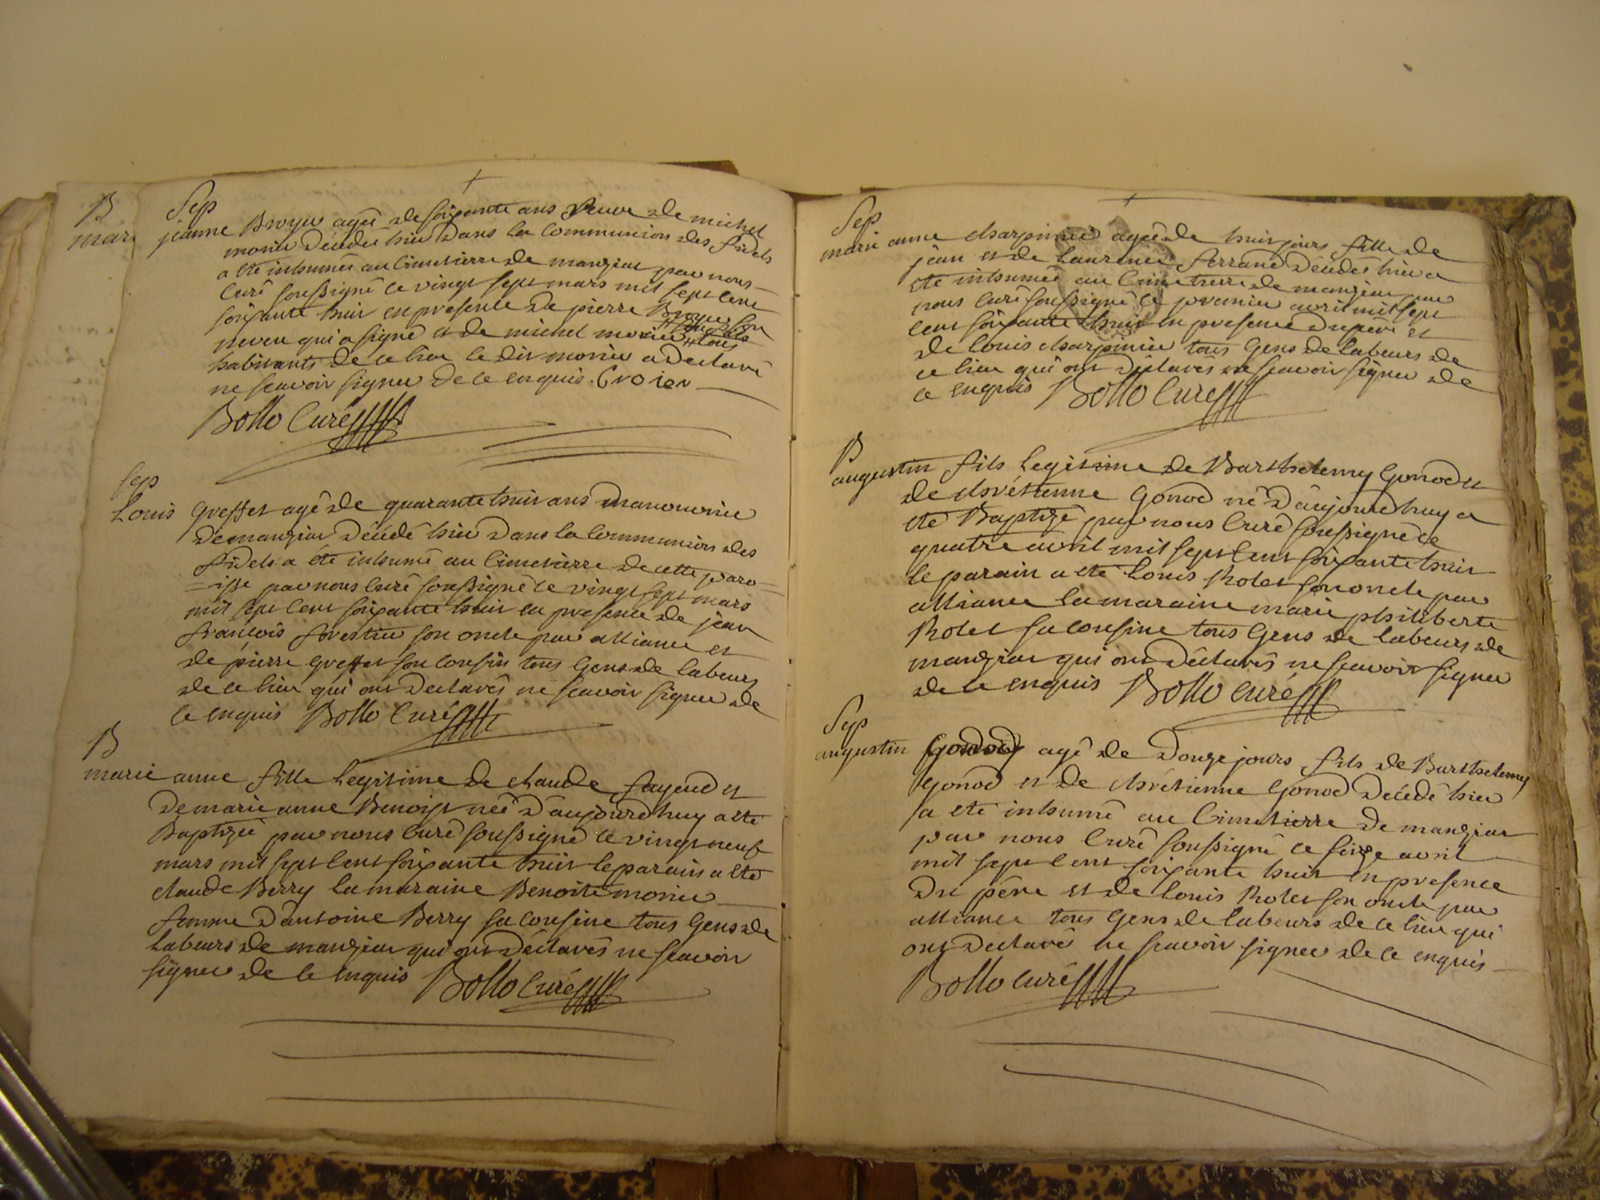 B
mari
Sep
jeanne Broyer agée de soixante ans veuve de michel
morin décédée hier dans la Communion des fidels
a été inhumée au Cimetierre de manziat par nous
Curé soussigné le vingt sept mars mil sept cent
soixante huit en presence de pierre Broyer son
neveu qui a signé et de michel morin tous
habitants de ce lieu le dit morin a declaré
ne scavoir signer de ce enquis. Broier
Bollo Curé
Sep
Louis Greffet agé de quarante huit ans manouvrier
de manziat décédé hier dans la Communion des
fidels a été inhumé au Cimetierre de cette paro-
-isse par nous Curé soussigné le vingt sept mars
mil sept cent soixante huit en presence de jean
françois son oncle par alliance et
de pierre Greffet son cousin tous Gens de labeurs
de ce lieu qui ont declarés ne scavoir signer de
ce enquis Bollo Curé
B
marie anne fille legitime de claude fayend et
de marie anne Benoist née d'aujourdhuy a été
Baptizée par nous Curé soussigné le vingt neuf
mars mil sept cent soixante huit le parain a été
claude Berry la maraine Benoite morin
femme d'antoine Berry sa cousine tous Gens de
labeurs de manziat qui ont déclarés ne scavoir
signer de ce enquis Bollo Curé
Sep
marie anne charpinier agée de huit jours fille de
jean et de Laurence ferrand décédée hier a
été inhumée au Cimetierre de manziat par
nous Curé soussigné le premier avril mil sept
cent soixante huit en presence du pere et
de Louis charpinier tous Gens de labeurs de
ce lieu qui ont déclarés ne scavoir signer de
ce enquis Bollo Curé
B
augustin fils legitime de Barthelemy Gonod et
de chrétienne Gonod né d'aujourdhuy a
été Baptizé par nous Curé soussigné le
quatre avril mil sept cent soixante huit
le parain a été Louis Rolet son oncle par
alliance la maraine marie philiberte
Rolet sa cousine tous Gens de labeurs de
manziat qui ont déclarés ne scavoir signer
de ce enquis Bollo Curé
Sep
augustin Gonod agé de douze jours fils de Barthelemy
Gonod et de chrétienne Gonod décédé hier
a été inhumé au Cimetierre de manziat
par nous Curé soussigné le seize avril
mil sept cent soixante huit en presence
du père et de Louis Rolet son oncle par
alliance tous Gens de labeurs de ce lieu qui
ont declaré ne scavoir signer de ce enquis
Bollo Curé